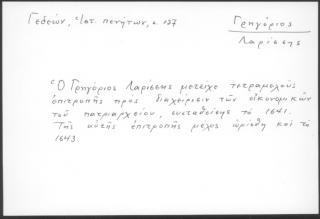 Γεδεών, Ἱστ. πενήτων, σ. 127
Γρηγόριος
Λαρίσσης
Ὁ Γρηγόριος Λαρίσσης μετεῖχε τετραμελοῦς
ἐπιτροπῆς πρὸς διαχείρισιν τῶν οἰκονομικῶν
τοῦ πατριαρχείου, συσταθείσης τὸ 1641.
Τῆς αὐτῆς ἐπιτροπῆς μέλος ὡρίσθη καὶ τὸ
1643.